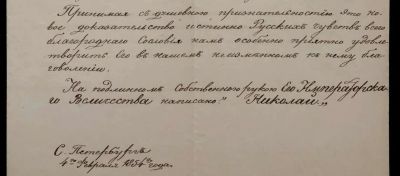 Принимая съ душевною признательностію это но-
вое доказательство истинно Русскихъ чувствъ всего
благороднаго Сословія намъ особенно пріятно удовле-
творить его въ нашемъ неизмѣнномъ къ нему бла-
говоленіи.
На подлинномъ Собственною рукою Его Императорска-
го Величества написано: "Николай"
С. Петербургъ
4го Февраля 1854го года.